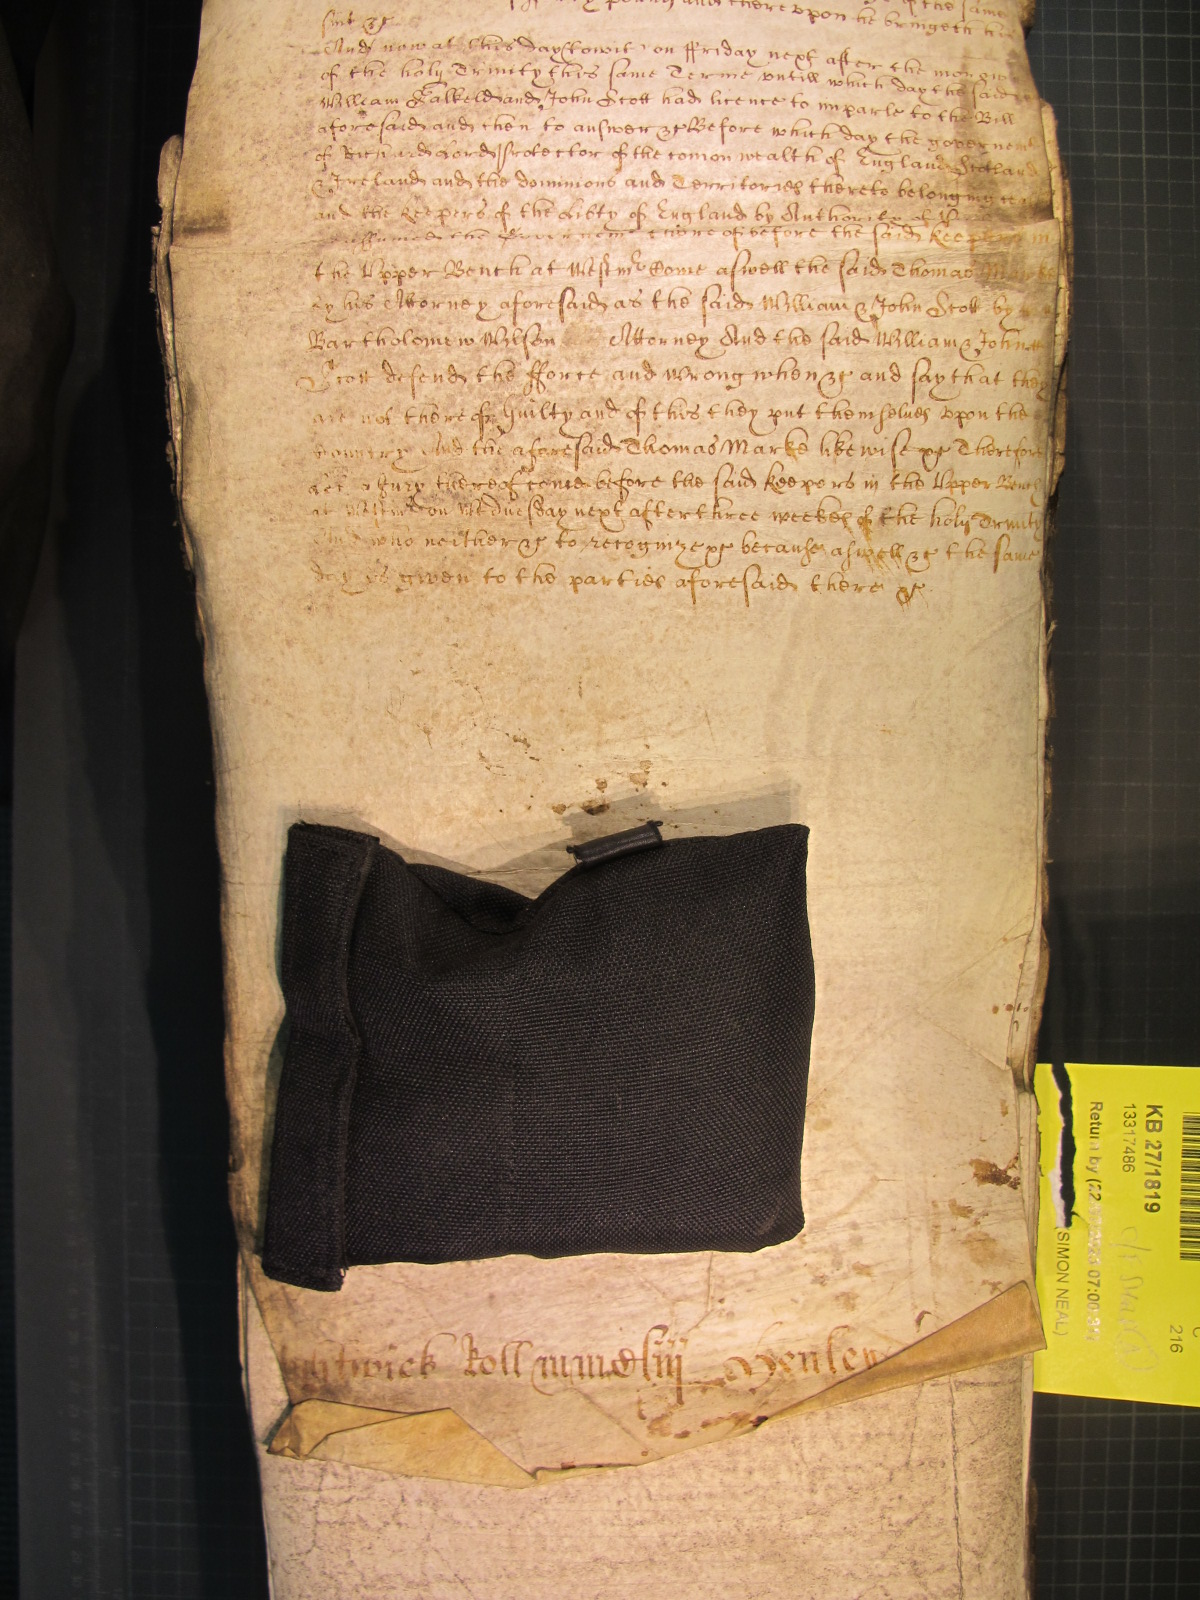 and there vpon he bringeth
suit &c
And now at this day to wit on ffriday next after the morrow
of the holy Trinity this same Terme vntill which day the said
William Salkeld and John Scott had licence to imparle to the Bill
aforesaid and then to answer &c Before which day the governem
of Richard Lord Protector of the comon wealth of England Scotland
& Ireland and the dominions and Territories thereto belonging
and the keepers of the Libty of England by Authority of
assumed the Governem before the said keepers in
the Vpper Bench at Westmr Come aswell the said Thomas Marke
by his Attorney aforesaid as the said William & John Scott by
Bartholomew Wilson Attorney And the said William & John
Scott defend the fforce and Wrong when &c and say that they
are not thereof Guilty and of this they put themselues vpon the
Country And the aforesaid Thomas Marke likewise &c Therefore
let a Jury thereof come before the said keepers in the Vpper Bench
at Westmr on Wednesday next after three weekes of the holy Trinity
And who neither &c to recognize &c because aswell &c the same
day is given to the parties aforesaid there &c
Roll
KB 27/1819
13317486
Return by (22 07:00:
SIMON NEAL)
216